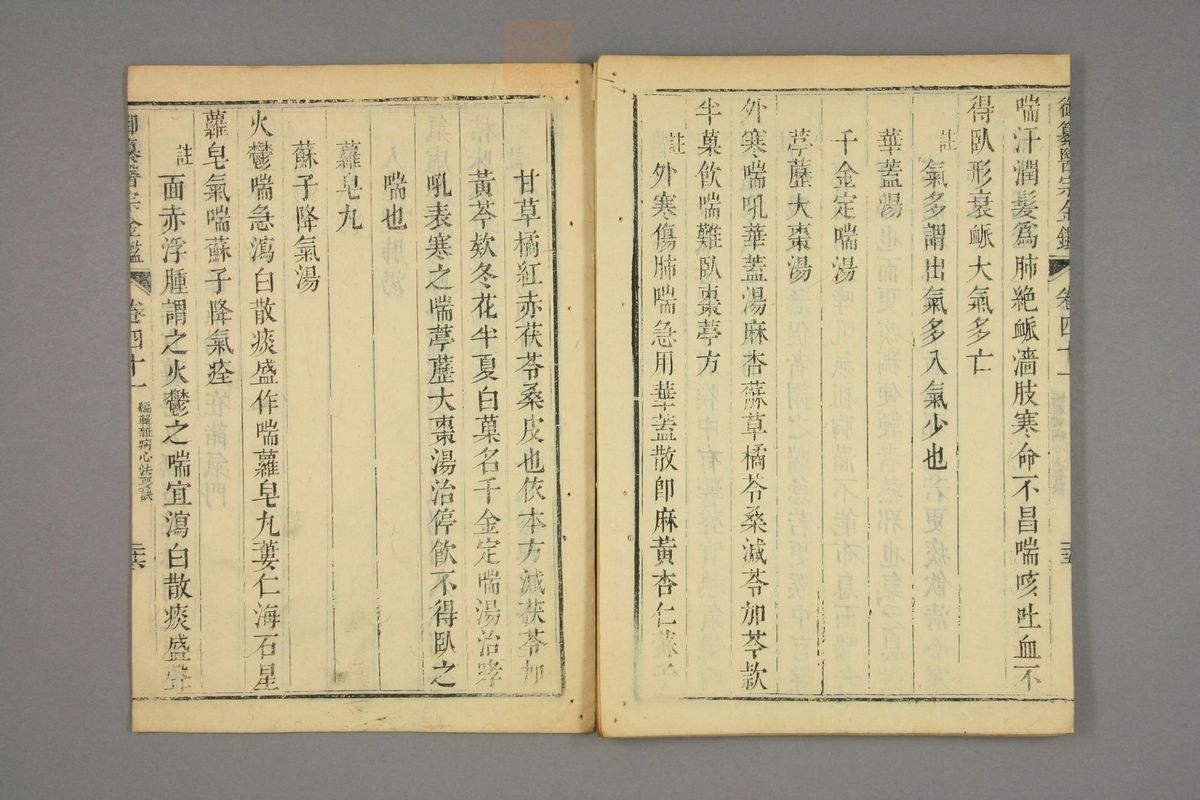 御纂醫宗金鑑 卷四十一
喘汗潤髮爲肺絶脈濇肢寒命不昌喘咳吐血不
得臥形衰脈大氣多亡
註 氣多謂出氣多入氣少也
華蓋湯
千金定喘湯
葶藶大棗湯
外寒喘吼華蓋湯麻杏蘇草橘苓桑減苓加芩款
半菓飲喘難臥棗葶方
註 外寒傷肺喘急用華蓋散卽麻黃杏仁蘇子
甘草橘紅赤茯苓桑皮也依本方減茯苓加
黃芩欵冬花半夏白菓名千金定喘湯治哮
吼表寒之喘葶藶大棗湯治停飲不得臥之
喘也
蘿皂丸
蘇子降氣湯
火鬱喘急瀉白散痰盛作喘蘿皂丸蔞仁海石星
蘿皂氣喘蘇子降氣痊
註 面赤浮腫謂之火鬱之喘宜瀉白散痰盛聲
御纂醫宗金鑑 卷四十一 編輯雜病心法要訣